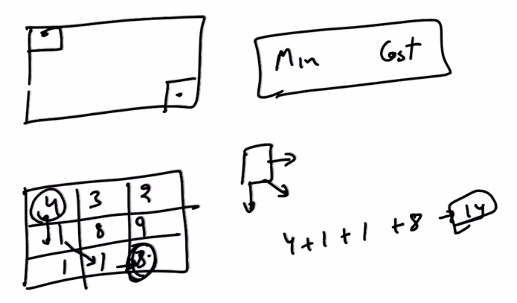 Min Cost
4 3 2
1 8 9
1 1 8
4 + 1 + 1 + 8 → 14